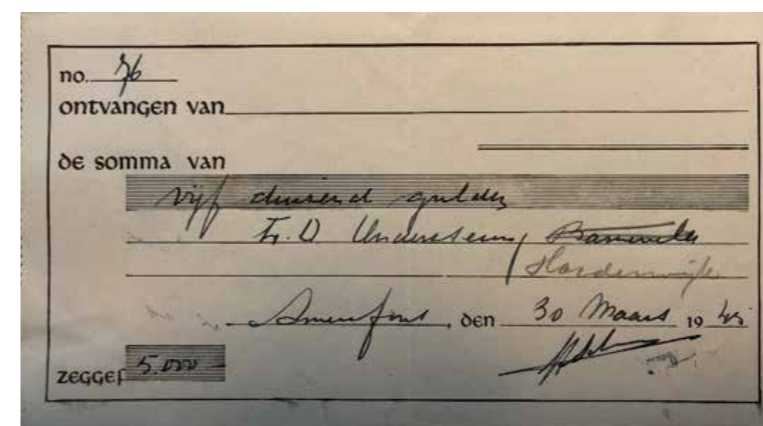 no. 76
ontvangen van
de somma van
vijf duizend gulden
Barneveld
Harderwijk
Amersfoort, den 30 Maart 1945
zegge f 5.000